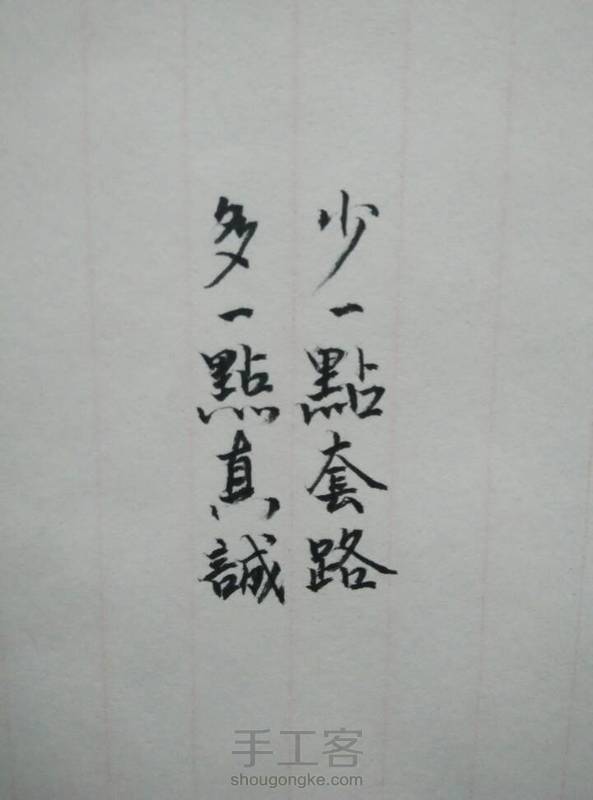 少一點套路
多一點真誠
手工客
shougongke.com